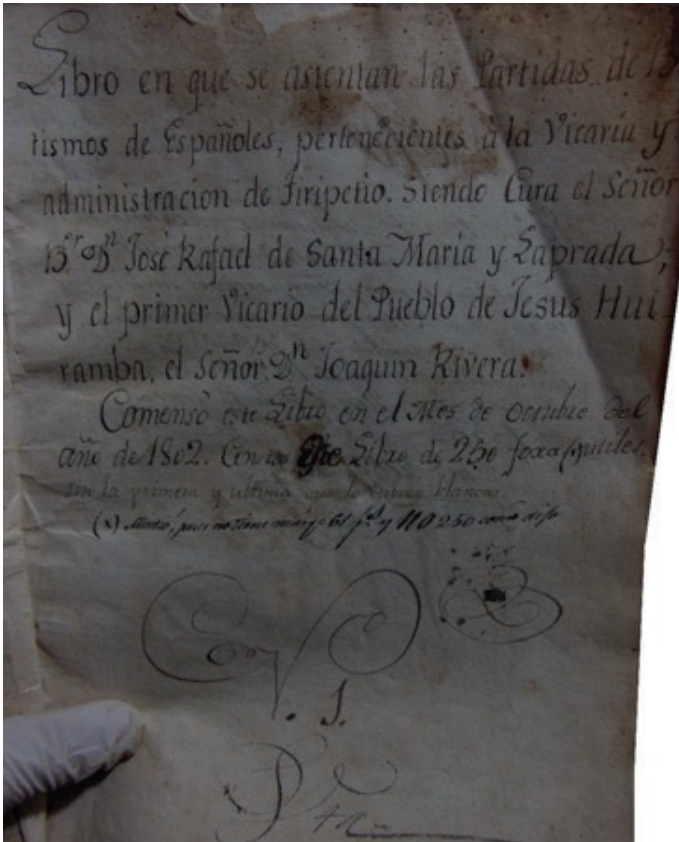 Libro en que se asientan las Partidas de B
tismos de Españoles, pertenecientes à la Vicaría y
administracion de Tiripetio. Siendo Cura el Señor
B.er D.n José Rafael de Santa María y Zaprada,
y el primer Vicario del Pueblo de Jesus Hui-
ramba, el Señor D.n Joaquin Rivera.
Comensó este Libro en el Mes de Octubre del
año de 1802. Libro de 250 foxas (x) utiles.
sin la primera y ultima blancas.
(x) no tiene mas q.e 61 y no 250 como
1.